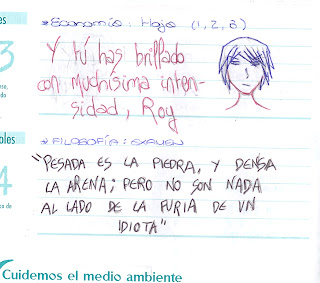 es
→ Economía: Hoja (1, 2, 3)
3
Y tú has brillado
con muchísima inten-
sidad, Roy
bles
→ FILOSOFÍA: EXAMEN
4
"PESADA ES LA PIEDRA, Y DENSA
LA ARENA; PERO NO SON NADA
AL LADO DE LA FURIA DE UN
IDIOTA"
Cuidemos el medio ambiente